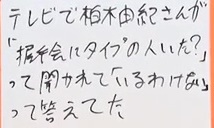 テレビで柏木由紀さんが
「握手会にタイプの人いた?」
って聞かれて「いるわけない」
って答えてた